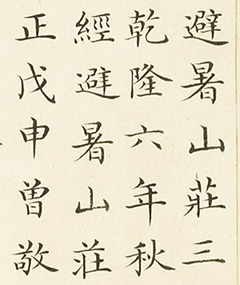 避暑山莊三
乾隆六年秋
經避暑山莊
正戊申曽敬